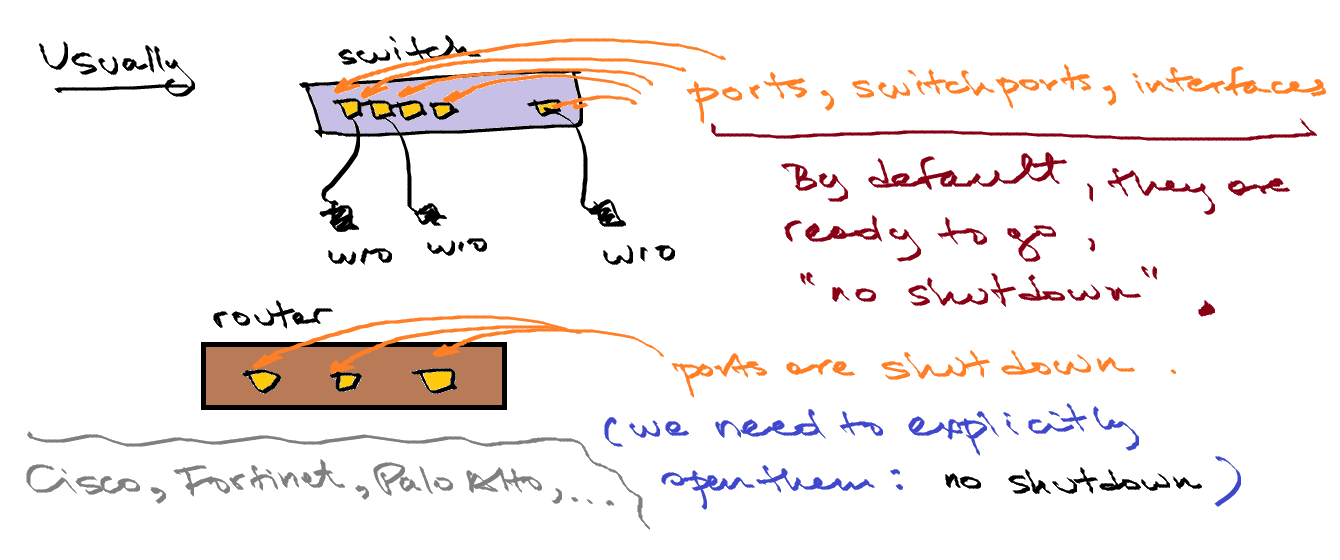 Usually
switch
ports, switchports, interfaces
By default, they are
ready to go,
"no shutdown".
W10 W10 W10
router
ports are shutdown.
(we need to explicitly
open them: no shutdown)
Cisco, Fortinet, Palo Alto, ...